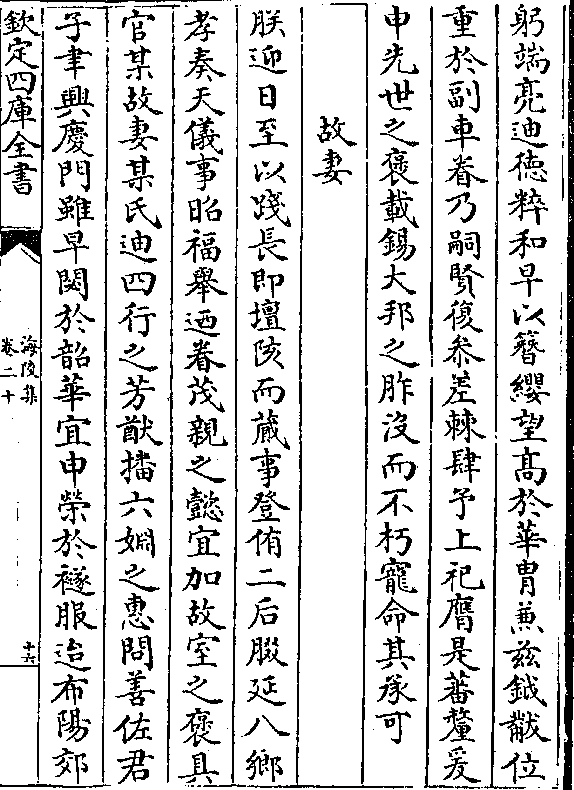 躬端亮迪徳粹和早以簪纓望髙於華胄兼兹鉞黻位
重於副車眷乃嗣賢復叅差棘肆予上祀膺是蕃釐爰
申先世之褒載錫大邦之胙沒而不朽寵命其承可
故妻
朕迎日至以踐長即壇陔而蕆事登侑二后腏延八鄉
孝奏天儀事昭福舉迺眷茂親之懿宜加故室之褒具
官某故妻某氏迪四行之芳猷播六婣之惠問善佐君
子聿興慶門雖早閟於韶華宜申榮於襚服迨布陽郊
欽定四庫全書
海陵集
卷二十
十六